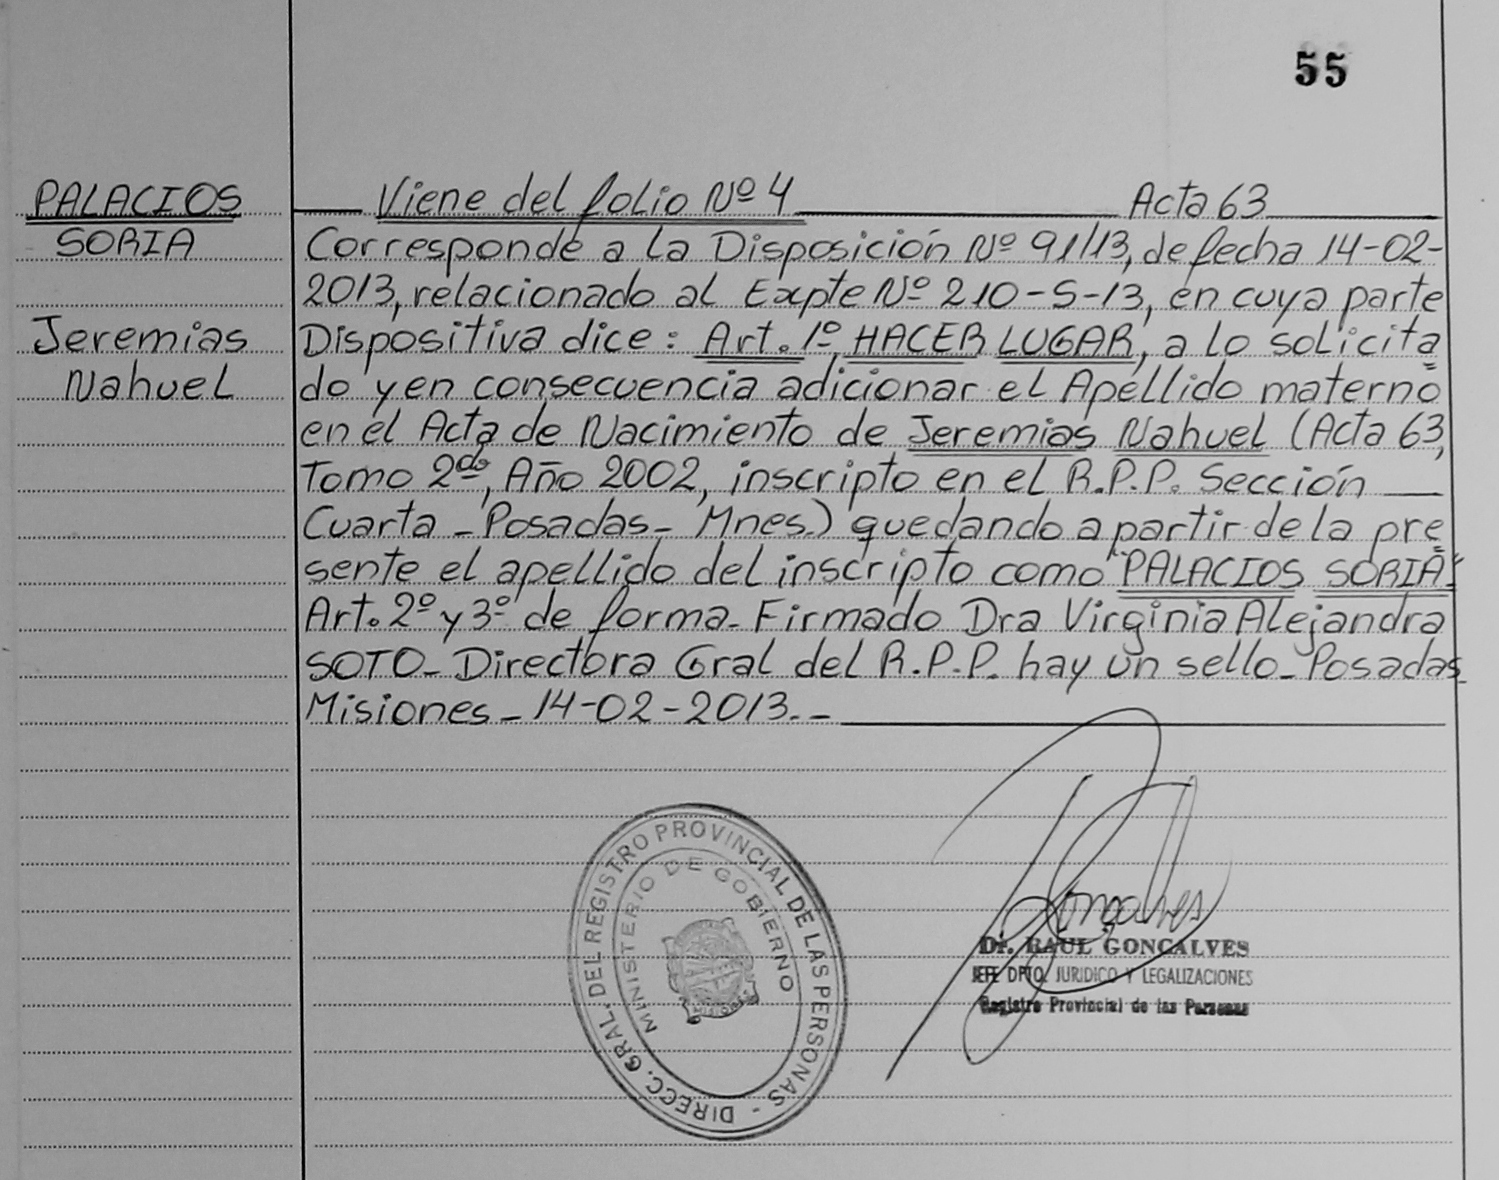 55
PALACIOS
SORIA
Jeremias
Nahuel
Viene del folio Nº 4 Acta 63
Corresponde a la Disposición Nº 91/13, de fecha 14-02-
2013, relacionado al Expte Nº 210-S-13, en cuya parte
Dispositiva dice: Art. 1º HACER LUGAR, a lo solicita
do y en consecuencia adicionar el Apellido materno
en el Acta de Nacimiento de Jeremias Nahuel (Acta 63,
Tomo 2do, Año 2002, inscripto en el R.P.P. Sección
Cuarta - Posadas - Mnes.) quedando a partir de la pre
sente el apellido del inscripto como "PALACIOS SORIA".
Art. 2º y 3º de forma - Firmado Dra Virginia Alejandra
SOTO - Directora Gral del R.P.P. hay un sello - Posadas
Misiones - 14-02-2013.-
DIRECC. GRAL. DEL REGISTRO PROVINCIAL DE LAS PERSONAS -
MINISTERIO DE GOBIERNO
MISIONES
Goncalves
Dr. RAUL GONCALVES
JEFE DPTO. JURIDICO Y LEGALIZACIONES
Registro Provincial de las Personas